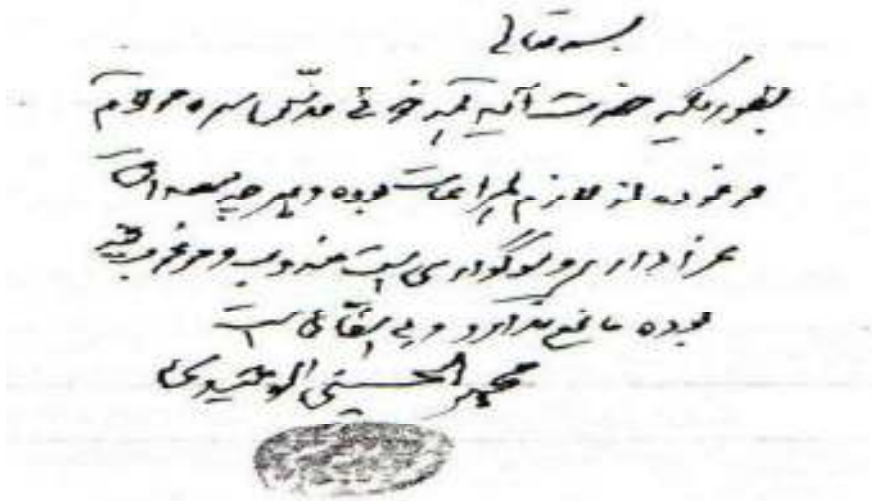 بسمه تعالی
بطوریکه حضرت آیه الله خوئی قدس سره مرقوم
فرموده اند لازم المراعات بوده و هر چه مصداق
عزاداری و سوگواری است مندوب و مرغوب فیه
بوده مانع ندارد و بی اشکال است
محمد الحسینی الوحیدی